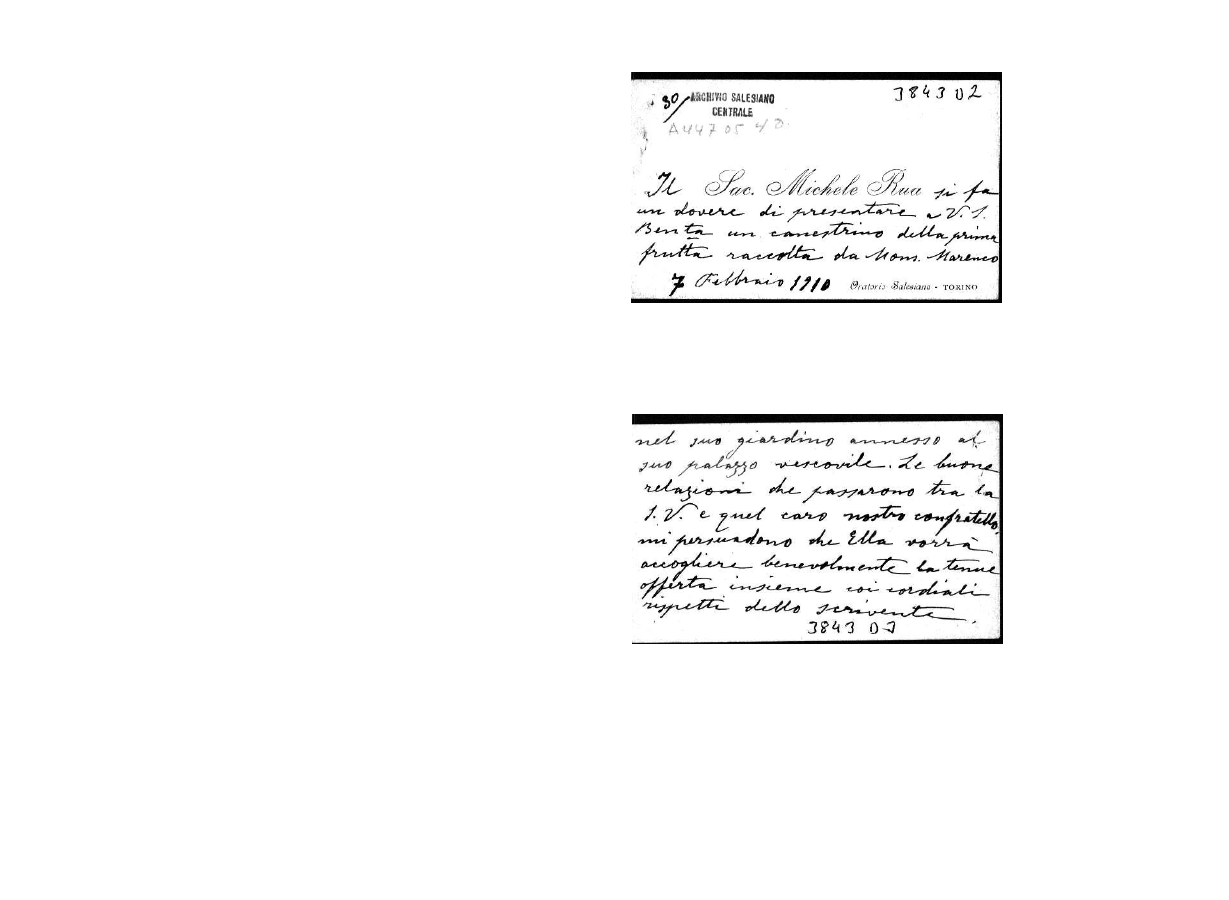 30/ ARCHIVIO SALESIANO
CENTRALE
3843 D2
A447 05 40.
Il Sac. Michele Rua si fa
un dovere di presentare a V. S.
Benta un canestrino della prima
frutta raccolta da Mons. Marenco
7 Febbraio 1910 Oratorio Salesiano - TORINO
nel suo giardino annesso al
suo palazzo vescovile. Le buone
relazioni che passarono tra la
S. V. e quel caro nostro confratello,
mi persuadono che Ella vorrà
accogliere benevolmente la tenue
offerta insieme coi cordiali
rispetti dello scrivente.
3843 D3